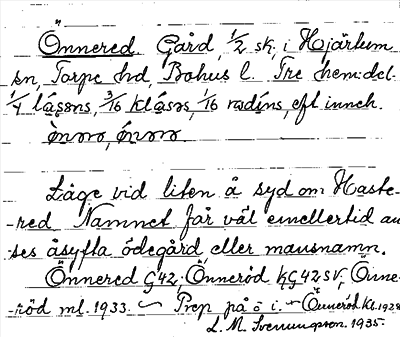 Önnered. Gård, 1/2 sk, i Hjärtum
sn, Torpe hd, Bohus l. Tre hem:del.
1/4 låsøns, 3/16 klåsəs, 1/16 radíns, eft inneh.
Läge vid liten å syd om Haste-
-red Namnet får väl emellertid an
-ses åsyfta ödegård, eller mansnamn.
Önnered G42, Önneröd KG42 SV, Önne-
-röd ml. 1933. ~ Prep på ö i. ~ Önneröd Kb. 1928
L. M. Svenungsson. 1935.